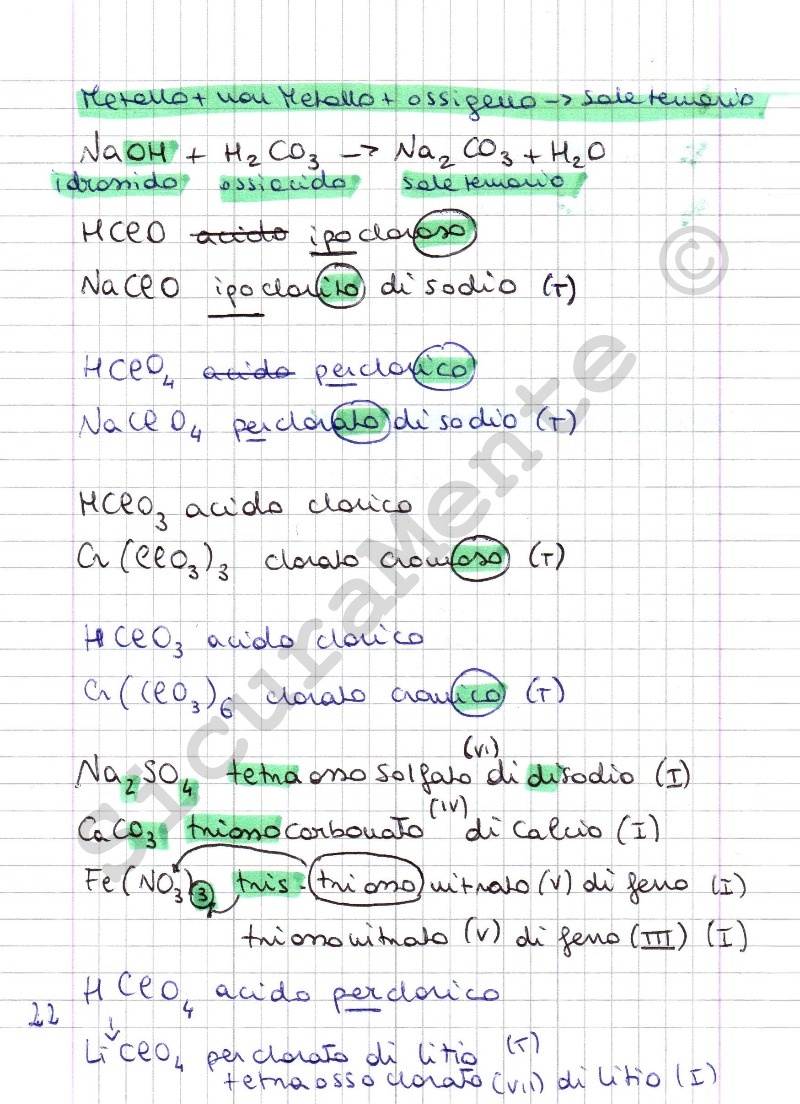 Metallo + non Metallo + ossigeno -> sale ternario
NaOH + H2CO3 -> Na2CO3 + H2O
idrossido ossiacido sale ternario
HClO acido ipocloroso
NaClO ipoclorito di sodio (T)
HClO4 acido perclorico
NaClO4 perclorato di sodio (T)
HClO3 acido clorico
Cr(ClO3)3 clorato cromoso (T)
HClO3 acido clorico
Cr(ClO3)6 clorato cromico (T)
Na2SO4 tetraossosolfato (VI) di disodio (I)
CaCO3 triossocarbonato (IV) di calcio (I)
Fe(NO3)3 tris-triossonitrato (V) di ferro (I)
triossonitrato (V) di ferro (III) (I)
HClO4 acido perclorico
22
LiClO4 perclorato di litio (T)
tetraossoclorato (VII) di litio (I)
SicuraMente ©